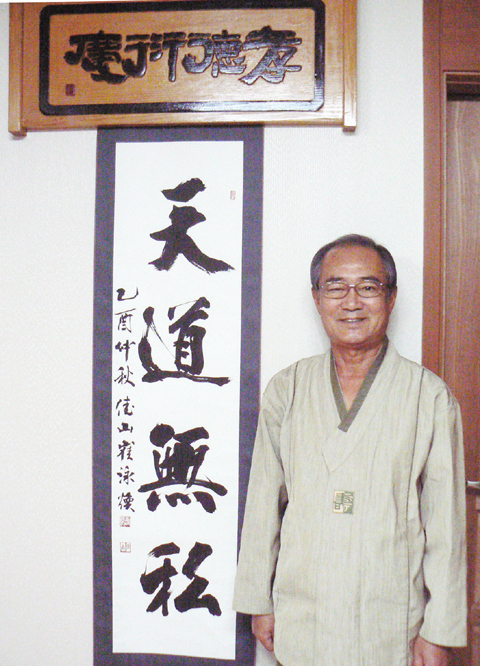 孝德衍慶
天道無私
乙酉仲秋佳山崔